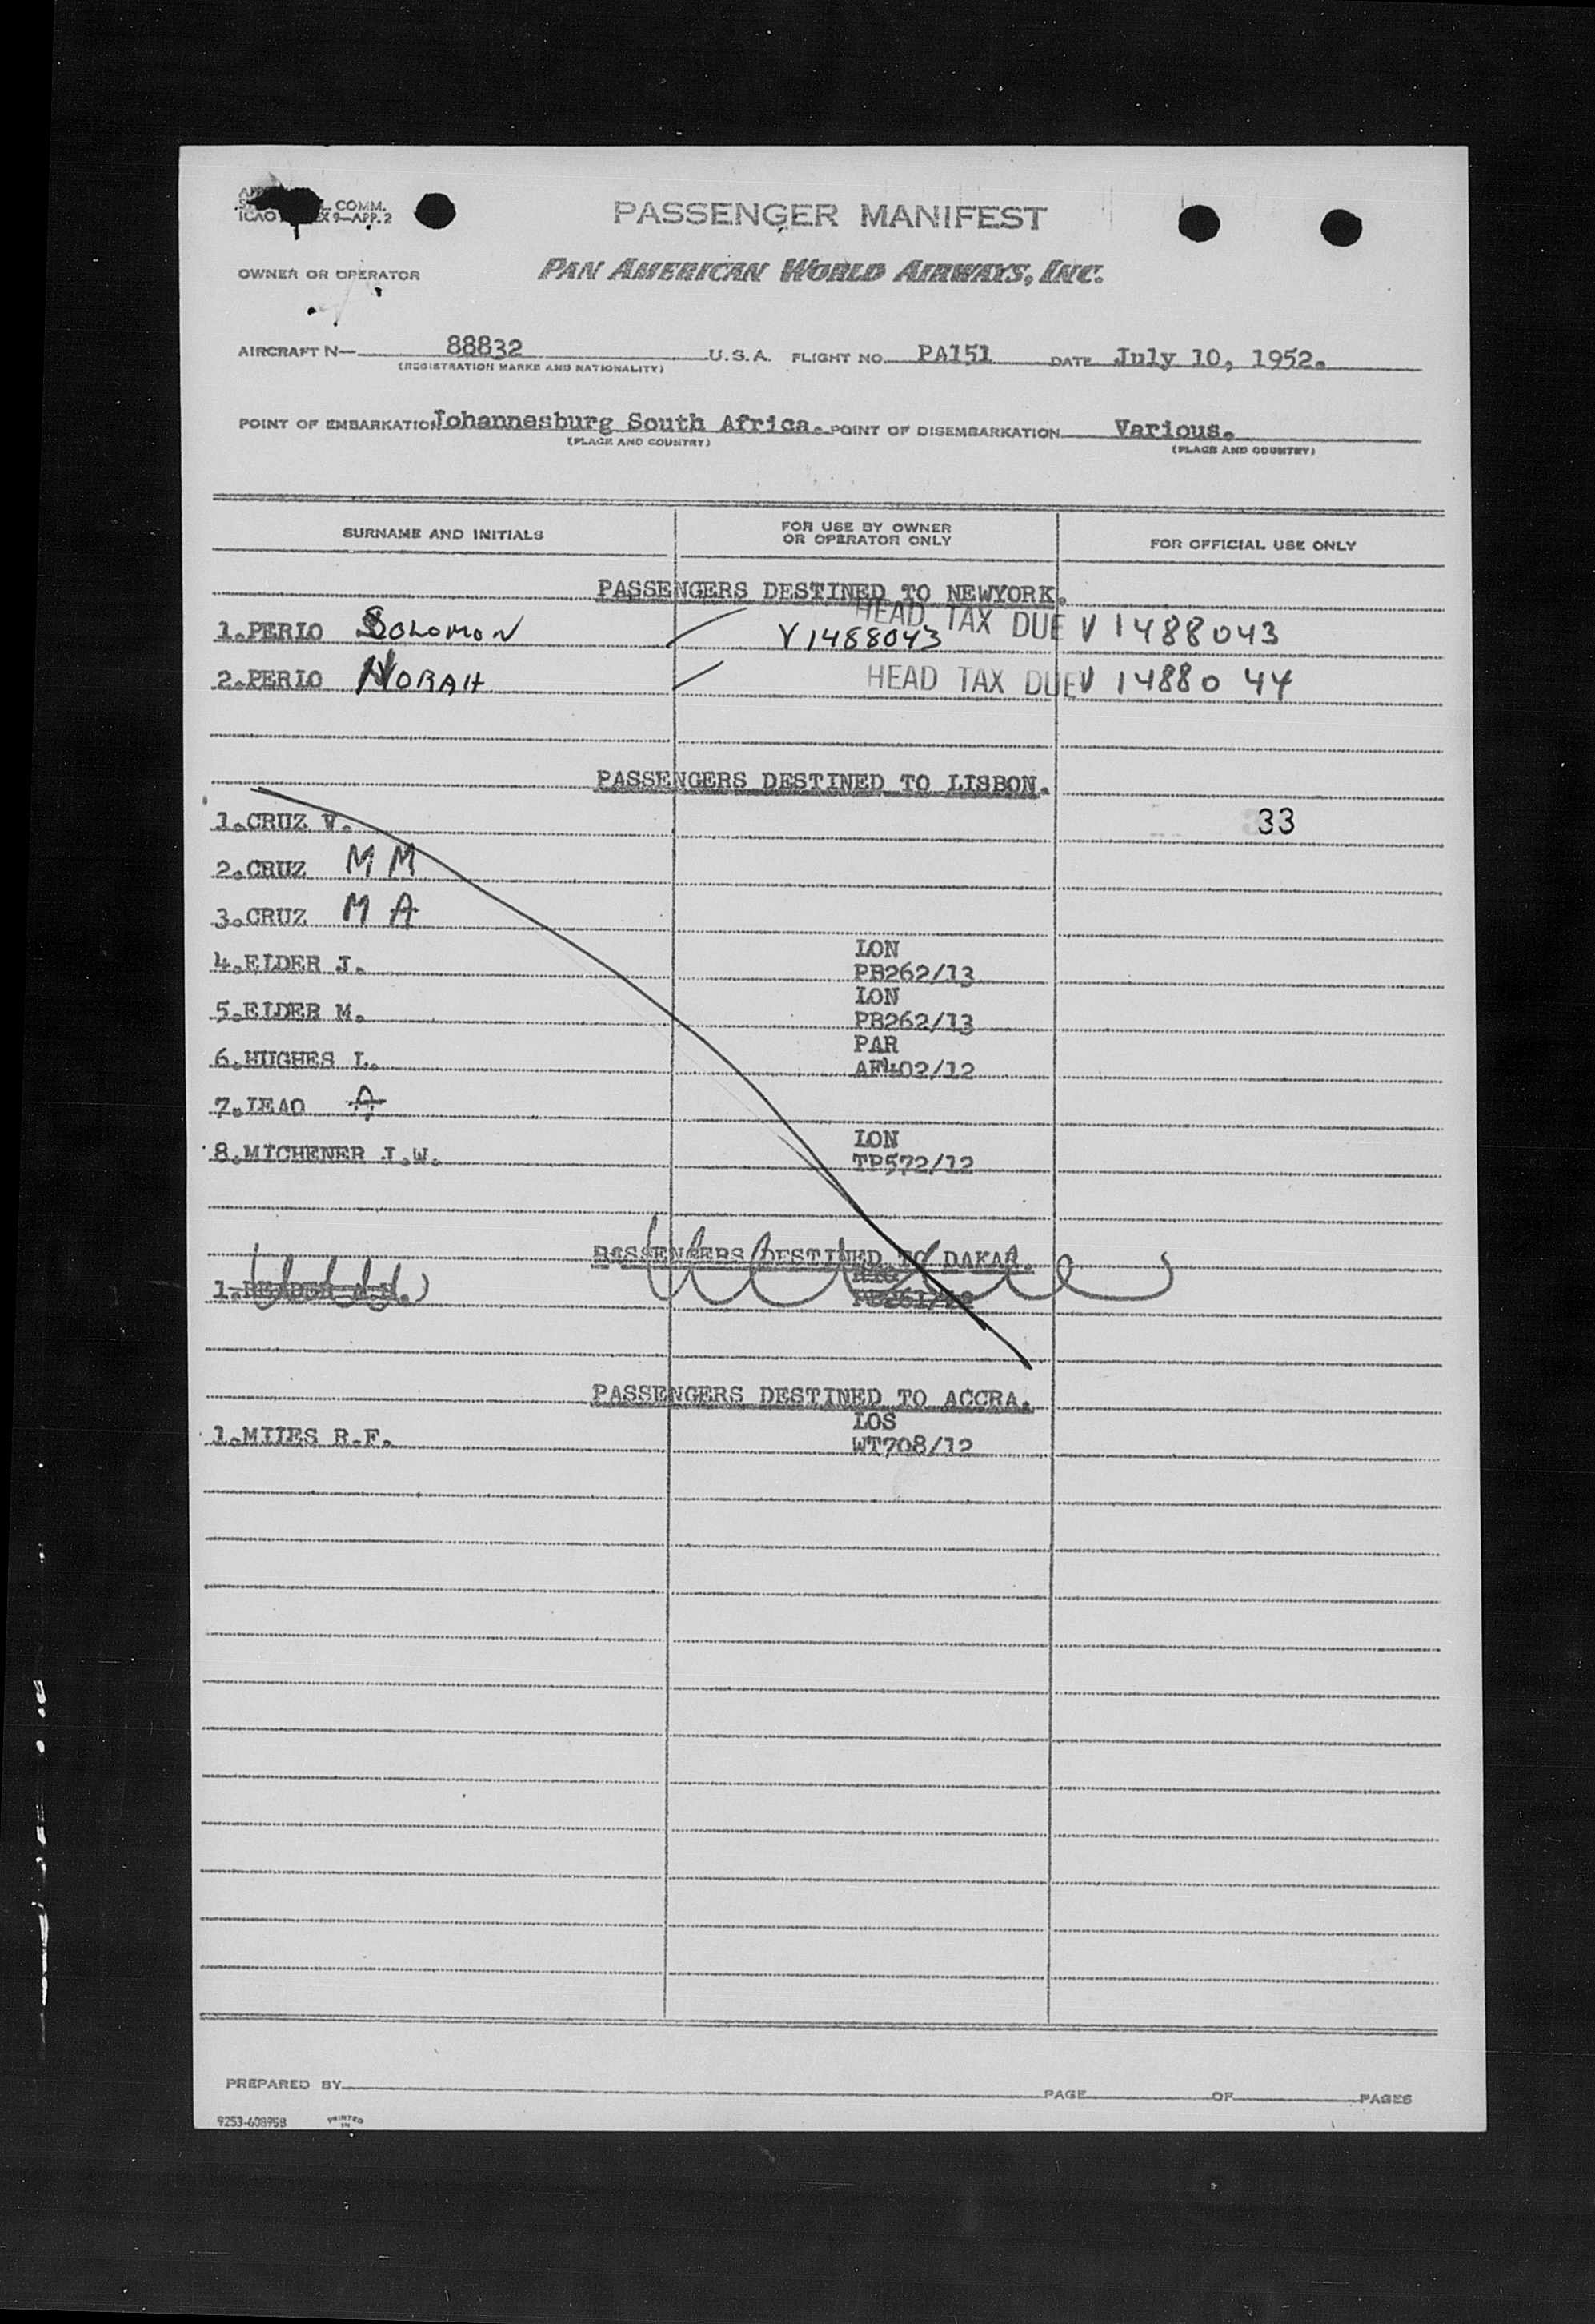 L. COMM.
ICAO X 9—APP. 2
PASSENGER MANIFEST
OWNER OR OPERATOR
PAN AMERICAN WORLD AIRWAYS, INC.
AIRCRAFT N— 88832 U.S.A. FLIGHT NO. PA151 DATE July 10, 1952.
(REGISTRATION MARKS AND NATIONALITY)
POINT OF EMBARKATION Johannesburg South Africa. POINT OF DISEMBARKATION Various.
(PLACE AND COUNTRY) (PLACE AND COUNTRY)
SURNAME AND INITIALS FOR USE BY OWNER OR OPERATOR ONLY FOR OFFICIAL USE ONLY
PASSENGERS DESTINED TO NEWYORK.
1.PERLO SOLOMON V1488043 HEAD TAX DUE V 1488043
2.PERLO NORAH HEAD TAX DUE V 14880 44
PASSENGERS DESTINED TO LISBON.
1.CRUZ V. 33
2.CRUZ M M
3.CRUZ M A
LON
4.ELDER J. PB262/13
LON
5.ELDER M. PB262/13
PAR
6.HUGHES L. AF402/12
7.LEAO A
LON
8.MICHENER J.W. TP572/12
PASSENGERS DESTINED TO DAKAR.
1.
PASSENGERS DESTINED TO ACCRA.
LOS
1.MILES R.F. WT708/12
PREPARED BY PAGE OF PAGES
9253-60895B PRINTED IN